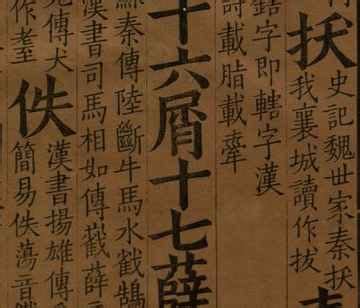 扷
史記魏世家秦扷
我襄城讀作拔
字即轄字漢
詩載脂載舝
十六屑十七薛
秦傳陸斷牛馬水截鵠
漢書司馬相如傳截薛
傳犬
作耋
佚
漢書揚雄傳
簡易佚蕩音